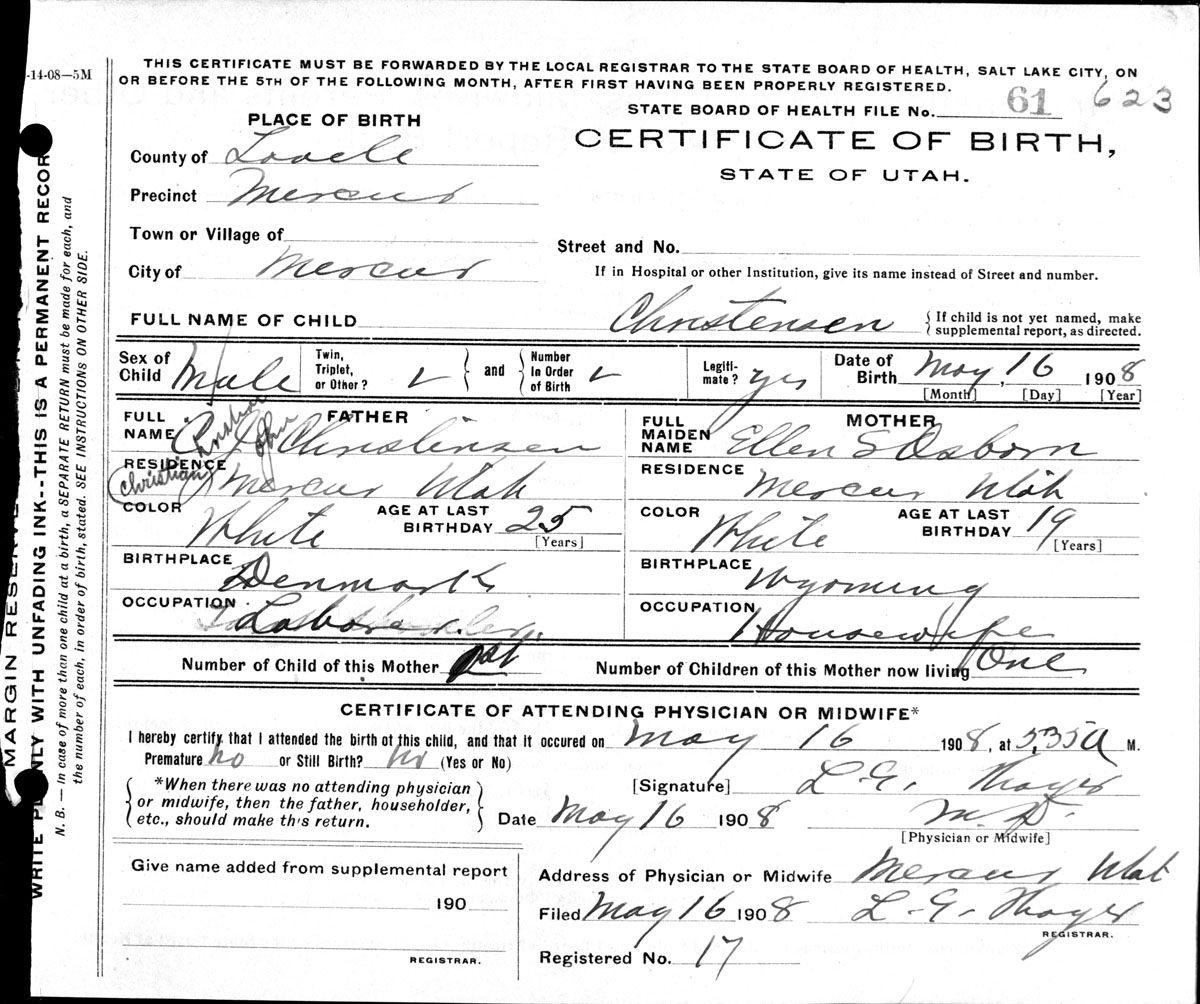 -14-08—5M
THIS CERTIFICATE MUST BE FORWARDED BY THE LOCAL REGISTRAR TO THE STATE BOARD OF HEALTH, SALT LAKE CITY, ON
OR BEFORE THE 5TH OF THE FOLLOWING MONTH, AFTER FIRST HAVING BEEN PROPERLY REGISTERED.
STATE BOARD OF HEALTH FILE No. 61 623
PLACE OF BIRTH
CERTIFICATE OF BIRTH,
STATE OF UTAH.
County of Tooele
Precinct Mercur
Town or Village of
Street and No.
City of Mercur
If in Hospital or other Institution, give its name instead of Street and number.
FULL NAME OF CHILD Christensen { If child is not yet named, make
supplemental report, as directed.
Sex of Child Male
Twin, Triplet, or Other?
and
Number In Order of Birth
Legiti-mate? yes
Date of Birth May, 16 1908
[Month] [Day] [Year]
FATHER
FULL NAME C John Christensen
(Christian)
RESIDENCE Mercur Utah
COLOR White AGE AT LAST BIRTHDAY 25
[Years]
BIRTHPLACE Denmark
OCCUPATION Laborer
MOTHER
FULL MAIDEN NAME Ellen S Osborn
RESIDENCE Mercur Utah
COLOR White AGE AT LAST BIRTHDAY 19
[Years]
BIRTHPLACE Wyoming
OCCUPATION Housewife
Number of Child of this Mother 1st Number of Children of this Mother now living One
CERTIFICATE OF ATTENDING PHYSICIAN OR MIDWIFE*
I hereby certify that I attended the birth of this child, and that it occured on May 16 1908, at 5,35 A M.
Premature? no or Still Birth? No (Yes or No)
*When there was no attending physician
or midwife, then the father, householder,
etc., should make this return.
[Signature] L. G. Thayer
Date May 16 1908 M. D.
[Physician or Midwife]
Give name added from supplemental report
190
REGISTRAR.
Address of Physician or Midwife Mercur Utah
Filed May 16 1908 L. G. Thayer
REGISTRAR.
Registered No. 17
MARGIN RESERVE
WRITE PLAINLY WITH UNFADING INK--THIS IS A PERMANENT RECOR
N. B. — In case of more than one child at a birth, a SEPARATE RETURN must be made for each, and
the number of each, in order of birth, stated. SEE INSTRUCTIONS ON OTHER SIDE.